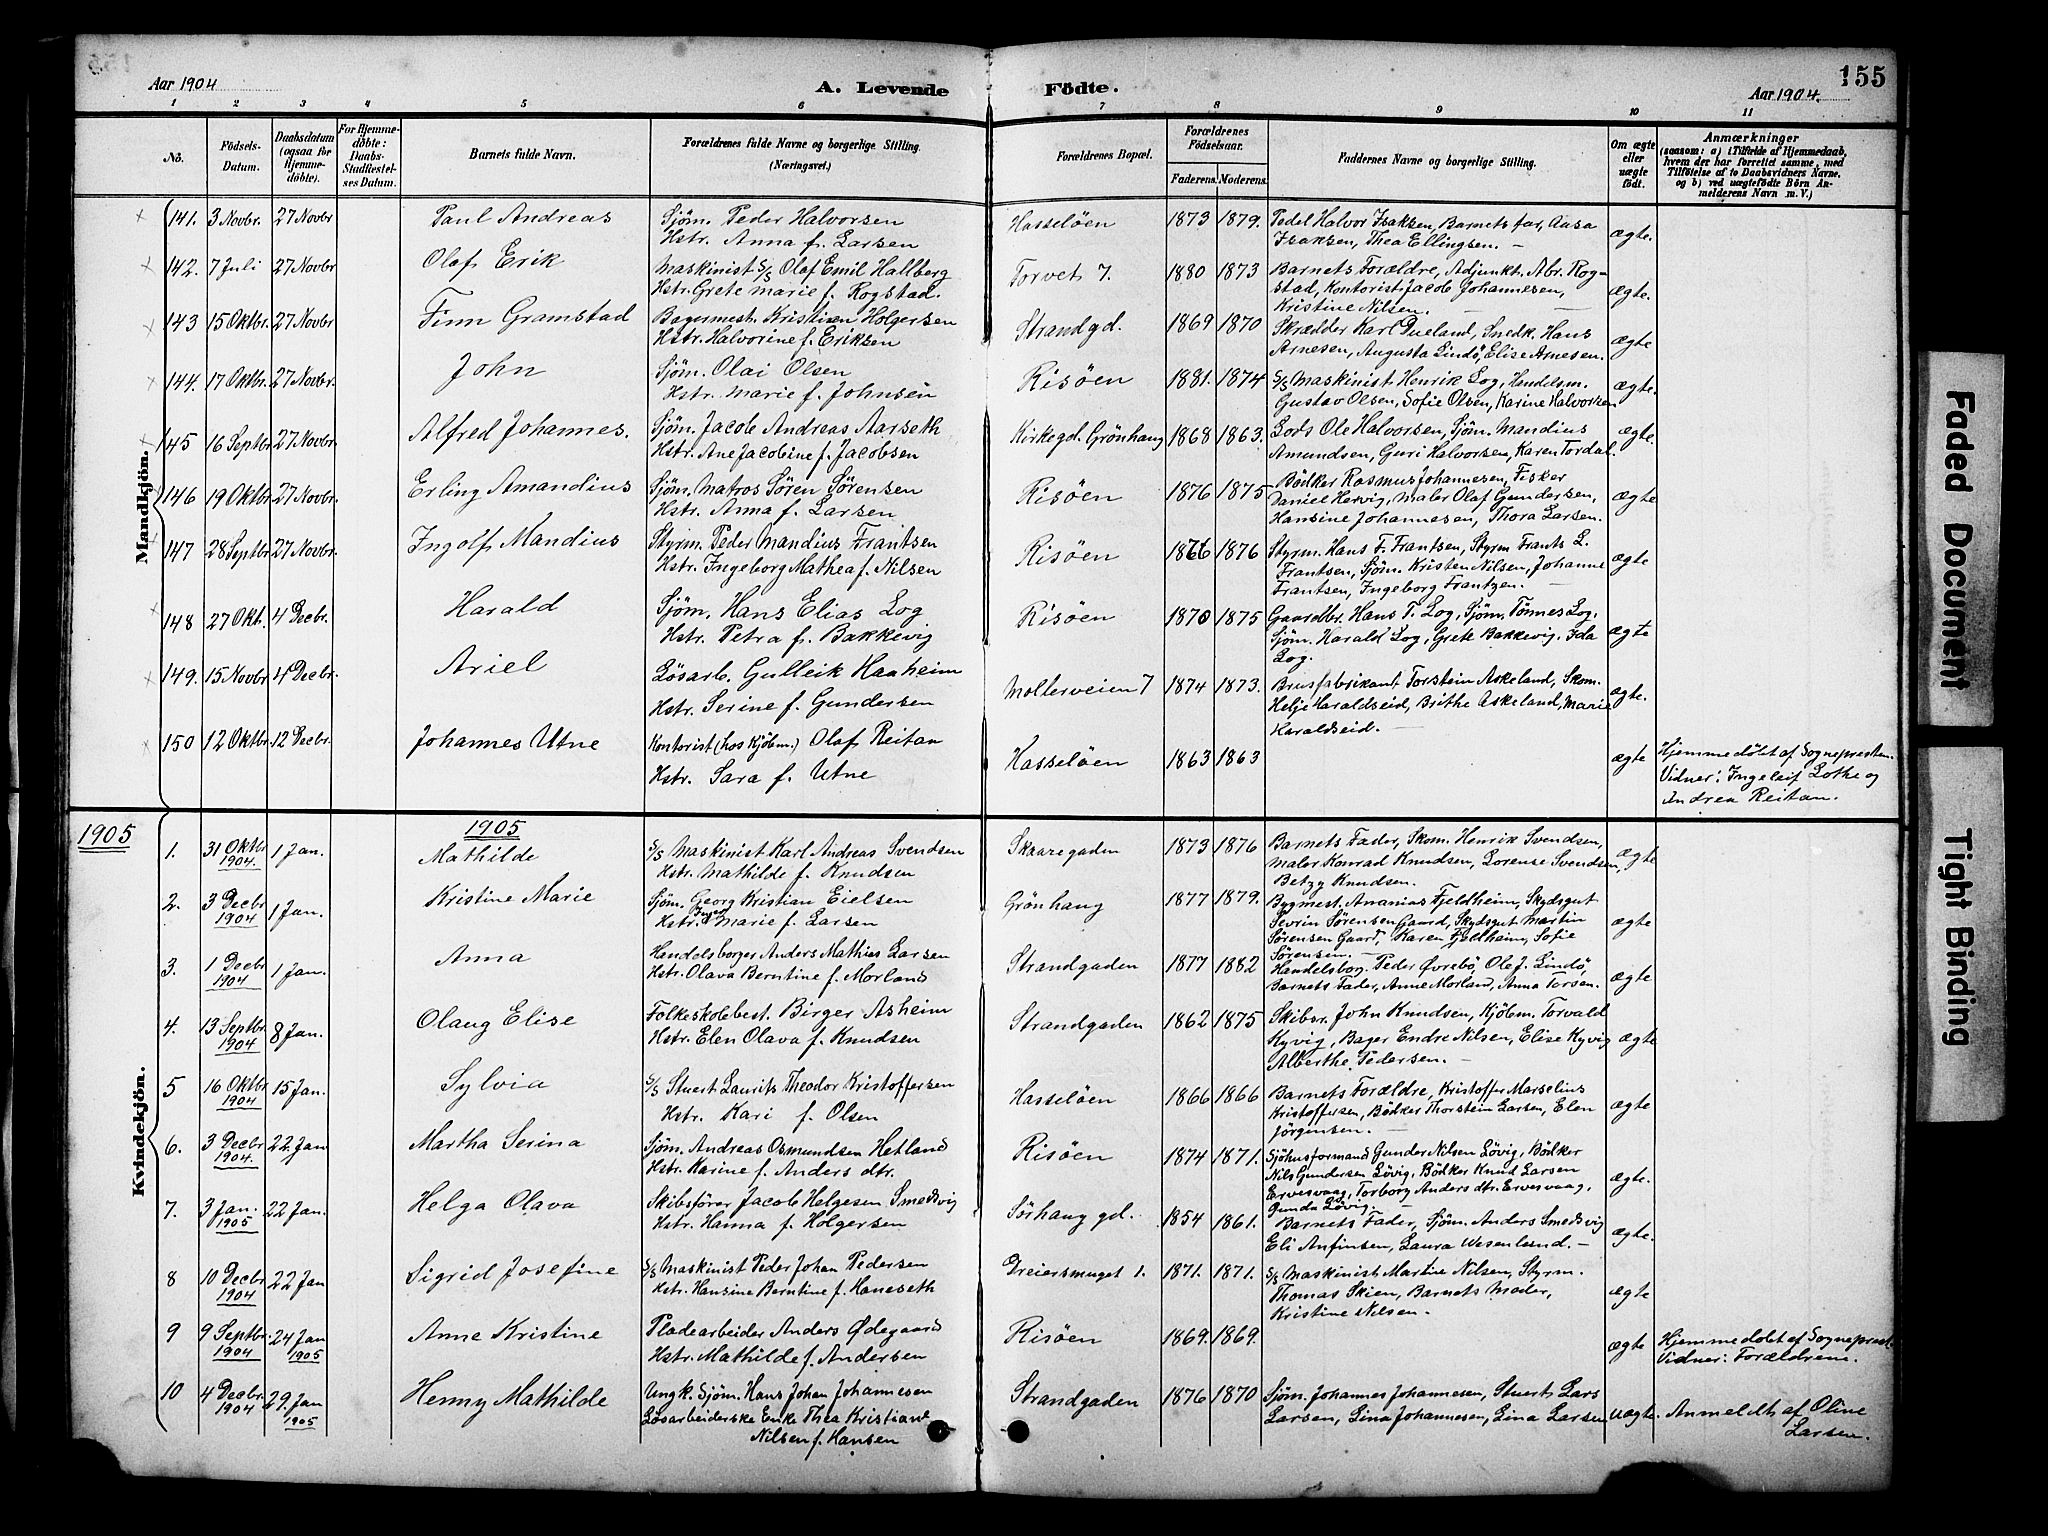 155
Aar 1904
A. Levende
Födte.
Aar 1904.
1 2 3 4 5 6 7 8 9 10 11
No.
Födsels-
Datum.
Daabsdatum
(ogsaa for
Hjemme-
döbte).
For Hjemme-
döbte:
Daabs-
Stadfæstel-
ses Datum.
Barnets fulde Navn.
Forældrenes fulde Navne og borgerlige Stilling.
(Næringsvei.)
Forældrenes Bopæl.
Forældrenes
Födselsaar.
Faderens. Moderens.
Faddernes Navne og borgerlige Stilling.
Om ægte
eller
uægte
födt.
Anmærkninger
(saasom: a) i Tilfælde af Hjemmedaab,
hvem der har forrettet samme, med
Tilföielse af to Daabsvidners Navne.
og b) ved uægtefödte Börn An-
melderens Navn m. V.)
Mandkjön.
141. 3 Novbr. 27 Novbr Paul Andreas Sjöm. Peder Halvorsen
Hstr. Anna f. Larsen
Hasselöen 1873 1879. Pedel Halvor Isaksen, Barnets far, Aasa
Isaksen, Thea Ellingsen. — ægte.
142. 7 Juli 27 Novbr Olaf Erik Maskinist S/S Olaf Emil Hallberg
Hstr. Grete Marie f. Rogstad.
Torvet 7. 1880 1873 Barnets Forældre, Adjunkt. Abr. Rog-
stad, Kontorist Jacob Johannesen,
Kristine Nilsen. — ægte.
143 15 Oktbr. 27 Novbr Finn Gramstad Bagermest. Kristian Holgersen
Hstr. Halvorine f. Eriksen
Strandgd. 1869 1870 Skrædder Karl Dueland, Snedk. Hans
Arnesen, Augusta Lindö, Elise Arnesen. ægte
144. 17 Oktbr. 27 Novbr. John Sjöm. Olai Olsen
Hstr. Marie f. Johnsen
Risöen 1881. 1874 S/S Maskinist Henrik Log, Handelsm.
Gustav Olsen, Sofie Olsen, Karine Halvorsen ægte.
145 16 Septbr 27 Novbr. Alfred Johannes. Sjöm. Jacob Andreas Aarseth
Hstr. Ane Jacobine f. Jacobsen
Kirkegd. Grönhaug 1868 1863. Lods Ole Halvorsen, Sjöm. Mandius
Amundsen, Guri Halvorsen, Karen Tordal. ægte.
146 19 Oktbr. 27 Novbr. Erling Amandius Sjöm. Matros Sören Sörensen
Hstr. Anna f. Larsen
Risöen 1876 1875 Bödker Rasmus Johannesen, Fisker
Daniel Hervig, Maler Olaf Gundersen,
Hansine Johannesen, Thora Larsen. ægte
147 28 Septbr 27 Novbr. Ingolf Mandius Styrm. Peder Mandius Frantsen
Hstr. Ingeborg Mathea f. Nilsen
Risöen 1876 Styrm. Hans F. Frantsen, Styrm Frants L.
Frantsen, Sjöm. Kristen Nilsen, Johanne
Frantsen, Ingeborg Frantzen. — ægte
148 27 Okt. 4 Decbr. Harald Sjöm. Hans Elias Log
Hstr. Petra f. Bakkevig
Risöen 1870 1875 Gaardbr. Hans T. Log, Sjöm. Tönnes Log.
Sjöm. Harald Log, Grete Bakkevig. Ida
Log. ægte
149. 15 Novbr 4 Decbr. Ariel Lösarb. Gulleik Haaheim
Hstr. Serine f. Gundersen
Mollerveien 7 1874 1873. Brusfabrikant Torstein Askeland, Skom.
Helje Haraldseid, Brithe Askeland, Marie
Haraldseid. — ægte.
150 12 Oktbr. 12 Decbr. Johannes Utne Kontorist (hos Kjöbm.) Olaf Reitan
Hstr. Sara f. Utne
Hasselöen 1863 1863 ægte Hjemmedöbt af Sognepresten
Vidner: Ingeleif Lothe og
Andrea Reitan.
1905
1905
Kvindekjön.
1. 31 Oktbr 1904. 1 Jan. Mathilde S/S Maskinist Karl Andreas Svendsen
Hstr. Mathilde f. Knudsen
Skaaregaden 1873 1876 Barnets Fader, Skom. Henrik Svendsen,
Maler Konrad Knudsen, Lorense Svendsen,
Betzy Knudsen. ægte
2. 3 Decbr 1904 1 Jan. Kristine Marie Sjöm. Georg Kristian Eielsen
Hstr. Inger Marie f. Larsen
Grönhaug 1877 1879. Bygmest. Ananias Fjeldheim, Skydsgut
Sevrin Sörensen Gaard, Skydsgut Martin
Sörensen Gaard, Karen Fjeldheim, Sofie
Sörensen. — ægte
3. 1 Decbr 1904 1 Jan. Anna Handelsborger Anders Mathias Larsen
Hstr. Olava Berntine f. Morland
Strandgaden 1877 1882 Handelsborg. Peder Øvrebö, Ole J. Lindö,
Barnets Fader, Anne Morland, Anna Torsen. ægte
4. 13 Septbr. 1904 8 Jan. Olaug Elise Folkeskolebest. Birger Asheim
Hstr. Elen Olava f. Knudsen
Strandgaden 1862 1875 Skibsr. John Knudsen, Kjöbm. Torvald
Kyvig, Bager Endre Nilsen, Elise Kyvig
Alberthe Pedersen. — ægte
5 16 Oktbr 1904 15 Jan. Sylvia S/S Stuert Laurits Theodor Kristoffersen
Hstr. Kari f. Olsen
Hasselöen 1866 1866 Barnets Forældre, Kristoffer Marselius
Kristoffersen, Bödker Thorstein Larsen, Elen
Jörgensen. — ægte
6. 3 Decbr 1904. 22. Jan Martha Serina Sjöm. Andreas Osmundsen Hetland
Hstr. Karine f. Anders dtr.
Risöen 1874 1871. Sjöhusformand Gunder Nilsen Lövig, Bödker
Nils Gundersen Lövig, Bödker Knud Larsen
Ervesvaag, Torborg Anders dtr. Ervesvaag,
Gunda Lövig. — ægte.
7. 3 Jan. 1905 22 Jan. Helga Olava Skibsförer Jacob Helgesen Smedsvig
Hstr. Hanna f. Holgersen
Sörhaug gd. 1854 1861. Barnets Fader, Sjöm. Anders Smedsvig
Eli Anfinsen, Laura Wesenlund. — ægte.
8 10 Decbr 1904 22 Jan Sigrid Josefine S/S Maskinist Peder Johan Pedersen
Hstr. Hansine Berntine f. Haneseth
Dreiersmuget 1. 1871. 1871. S/S Maskinist Martine Nilsen, Styrm.
Thomas Skien, Barnets Moder,
Kristine Nilsen. ægte
9 9 Septbr. 1904 24 Jan 1905 Anne Kristine Pladearbeider Anders Ødegaard
Hstr. Mathilde f. Andersen
Risöen 1869. 1869. ægte Hjemmedöbt af Sogneprest.
Vidner: Forældrene.
10 4 Decbr. 1904 29. Jan 1905 Henny Mathilde Ungk. Sjöm. Hans Johan Johannesen
Lösarbeiderske Enke Thea Kristiane
Nilsen f. Hansen
Strandgaden 1876 1870 Sjöm. Johannes Johannesen, Stuert Lars
Larsen, Lina Johannesen, Lina Larsen uægte. Anmeldt af Oline
Larsen.
Faded Document
Tight Binding